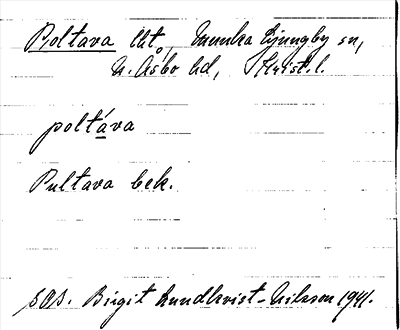 Poltava lht., Munka Ljungby sn,
N. Åsbo hd, Krist. l.
poltáva
Pultava bek.
SOS. Birgit Lundkvist-Nilsson 1941.